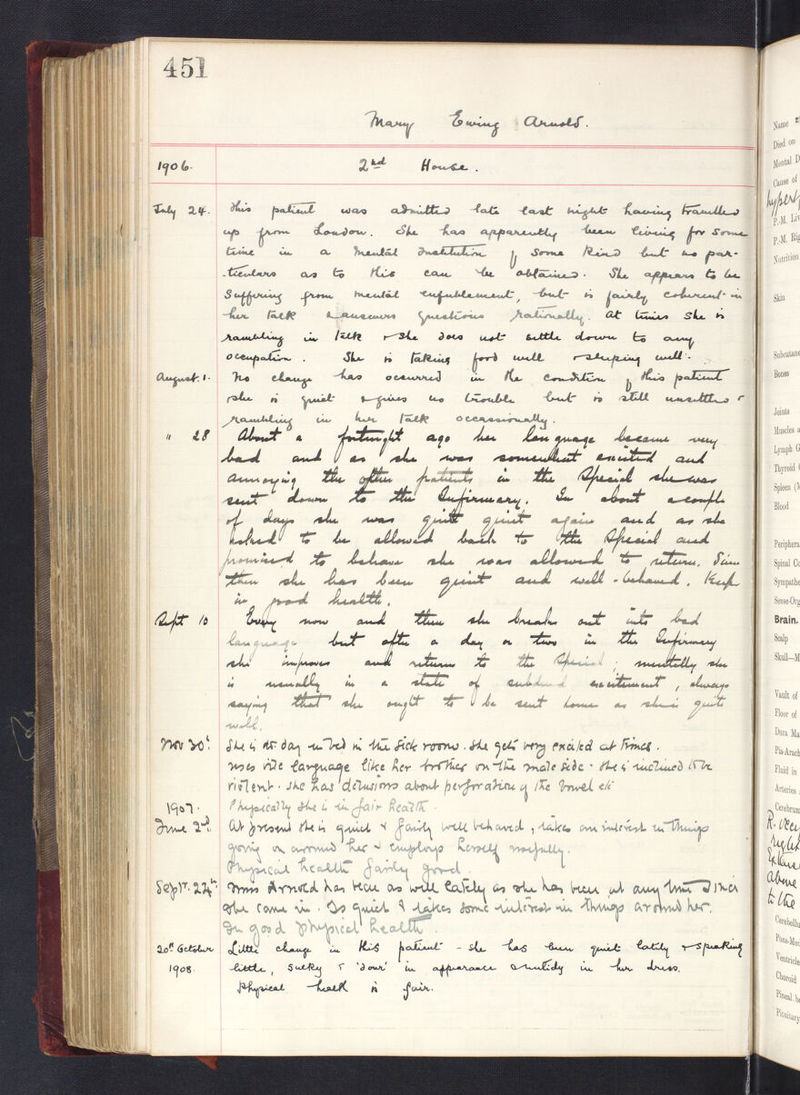 451
Mary Ewing Arnold.
1906. 2nd House.
July 24. This patient was admitted late last night having travelled
up from London. She has apparently been living for some
time in a mental Institution of some kind but no par-
-ticulars as to this can be obtained. She appears to be
suffering from mental enfeeblement, but is fairly coherent in
her talk & answers questions rationally. At times she is
rambling in talk & she does not settle down to any
occupation. She is taking food well & sleeping well.
August. 1. No change has occurred in the condition of this patient
she is quiet & gives no trouble but is still unsettled &
rambling in her talk occassionally.
" 28 About a fortnight ago her language became very
bad and as she was somewhat excited and
annoying the other patients in the Special she was
sent down to the Infirmary. In about a couple
of days she was quite quiet again and as she
asked to be allowed back to the Special and
promised to behave she was allowed to return. Since
then she has been quiet and well-behaved. Keeps
in good health.
Sept 10 Every now and then she breaks out into bad
language but after a day or two in the Infirmary
she improves and returns to the Special; mentally she
is usually in a state of subdued excitement, always
saying that she ought to be sent home as she is quite
well.
Nov 30. She is to day in bed in the sick room. She gets very excited at times.
uses vile language like her brother on the male side. She is inclined to be
violent. She has delusions about perforation of the bowel etc
1907. Physically she is in fair health.
June 2nd. At present she is quiet & fairly well behaved, takes an interest in things
going on around her & employs herself usefully.
Physical health fairly good.
Sept. 24th. Miss Arnold has been as well lately as she has been at any time since
she came in. Is quiet & takes some interest in things around her.
In good physical health.
20th October Little change in this patient - she has been quiet lately & speaking
1908. little, sulky & 'dour' in appearance & untidy in her dress.
Physical health is fair.
Name
Died on
Mental D
Cause of
P.-M. Liv
P.-M. Rig
Nutrition
Skin
Subcutane
Bones
Joints
Muscles a
Lymph G
Thyroid
Spleen
Blood
Periphera
Spinal Co
Sympathe
Sense-Org
Brain.
Scalp
Skull—M
Vault of
Floor of
Dura Ma
Pia-Arach
Fluid in
Arteries
Cerebrum
above
to the
Cerebellu
Pons-Med
Ventricle
Choroid
Pineal
Pituitary